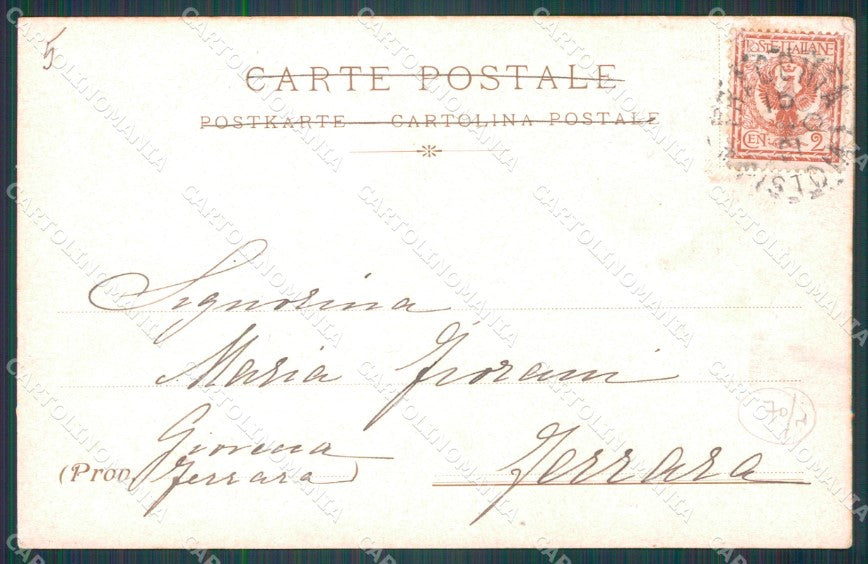 5
CARTE POSTALE
POSTKARTE — CARTOLINA POSTALE
POSTE ITALIANE
CEN. 2
Signorina
Maria
Ferrara
(Prov.
Ferrara)
CARTOLINOMANIA